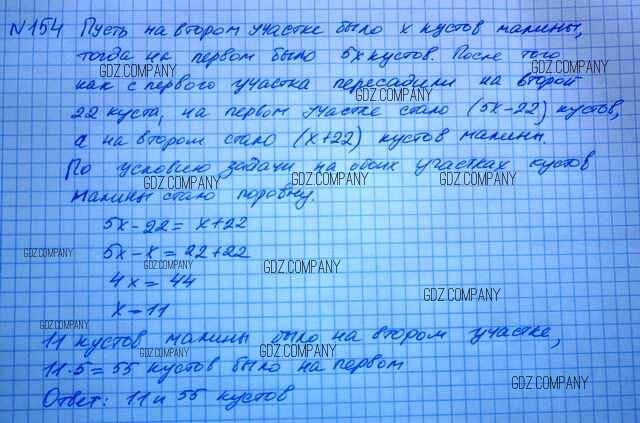 №154 Пусть на втором участке было x кустов малины,
тогда на первом было 5x кустов. После того
GDZ.COMPANY GDZ.COMPANY
как с первого участка пересадили на второй
GDZ.COMPANY
22 куста, на первом участке стало (5x-22) кустов,
а на втором стало (x+22) кустов малины.
По условию задачи на обоих участках кустов
GDZ.COMPANY GDZ.COMPANY GDZ.COMPANY
малины стало поровну.
5x-22 = x+22
5x-x = 22+22
GDZ.COMPANY
GDZ.COMPANY GDZ.COMPANY
4x = 44
GDZ.COMPANY
x=11
GDZ.COMPANY
11 кустов малины было на втором участке,
GDZ.COMPANY GDZ.COMPANY
11·5=55 кустов было на первом
GDZ.COMPANY
Ответ: 11 и 55 кустов